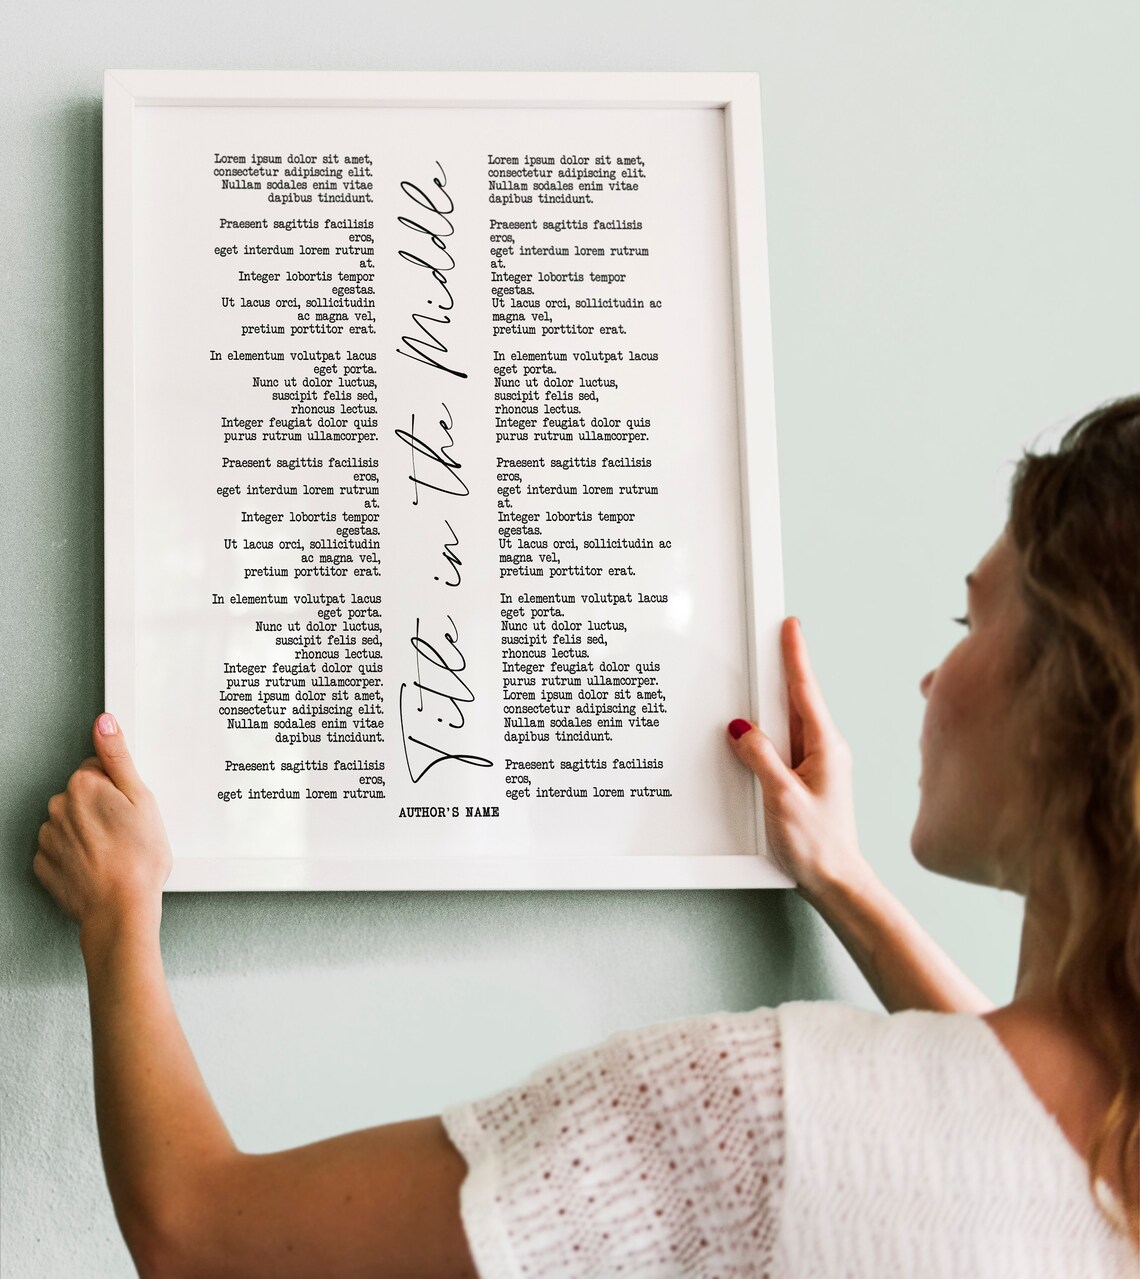 Lorem ipsum dolor sit amet,
consectetur adipiscing elit.
Nullam sodales enim vitae
dapibus tincidunt.
Praesent sagittis facilisis
eros,
eget interdum lorem rutrum
at.
Integer lobortis tempor
egestas.
Ut lacus orci, sollicitudin
ac magna vel,
pretium porttitor erat.
In elementum volutpat lacus
eget porta.
Nunc ut dolor luctus,
suscipit felis sed,
rhoncus lectus.
Integer feugiat dolor quis
purus rutrum ullamcorper.
Praesent sagittis facilisis
eros,
eget interdum lorem rutrum
at.
Integer lobortis tempor
egestas.
Ut lacus orci, sollicitudin
ac magna vel,
pretium porttitor erat.
In elementum volutpat lacus
eget porta.
Nunc ut dolor luctus,
suscipit felis sed,
rhoncus lectus.
Integer feugiat dolor quis
purus rutrum ullamcorper.
Lorem ipsum dolor sit amet,
consectetur adipiscing elit.
Nullam sodales enim vitae
dapibus tincidunt.
Praesent sagittis facilisis
eros,
eget interdum lorem rutrum.
Title in the Middle
Lorem ipsum dolor sit amet,
consectetur adipiscing elit.
Nullam sodales enim vitae
dapibus tincidunt.
Praesent sagittis facilisis
eros,
eget interdum lorem rutrum
at.
Integer lobortis tempor
egestas.
Ut lacus orci, sollicitudin ac
magna vel,
pretium porttitor erat.
In elementum volutpat lacus
eget porta.
Nunc ut dolor luctus,
suscipit felis sed,
rhoncus lectus.
Integer feugiat dolor quis
purus rutrum ullamcorper.
Praesent sagittis facilisis
eros,
eget interdum lorem rutrum
at.
Integer lobortis tempor
egestas.
Ut lacus orci, sollicitudin ac
magna vel,
pretium porttitor erat.
In elementum volutpat lacus
eget porta.
Nunc ut dolor luctus,
suscipit felis sed,
rhoncus lectus.
Integer feugiat dolor quis
purus rutrum ullamcorper.
Lorem ipsum dolor sit amet,
consectetur adipiscing elit.
Nullam sodales enim vitae
dapibus tincidunt.
Praesent sagittis facilisis
eros,
eget interdum lorem rutrum.
AUTHOR'S NAME